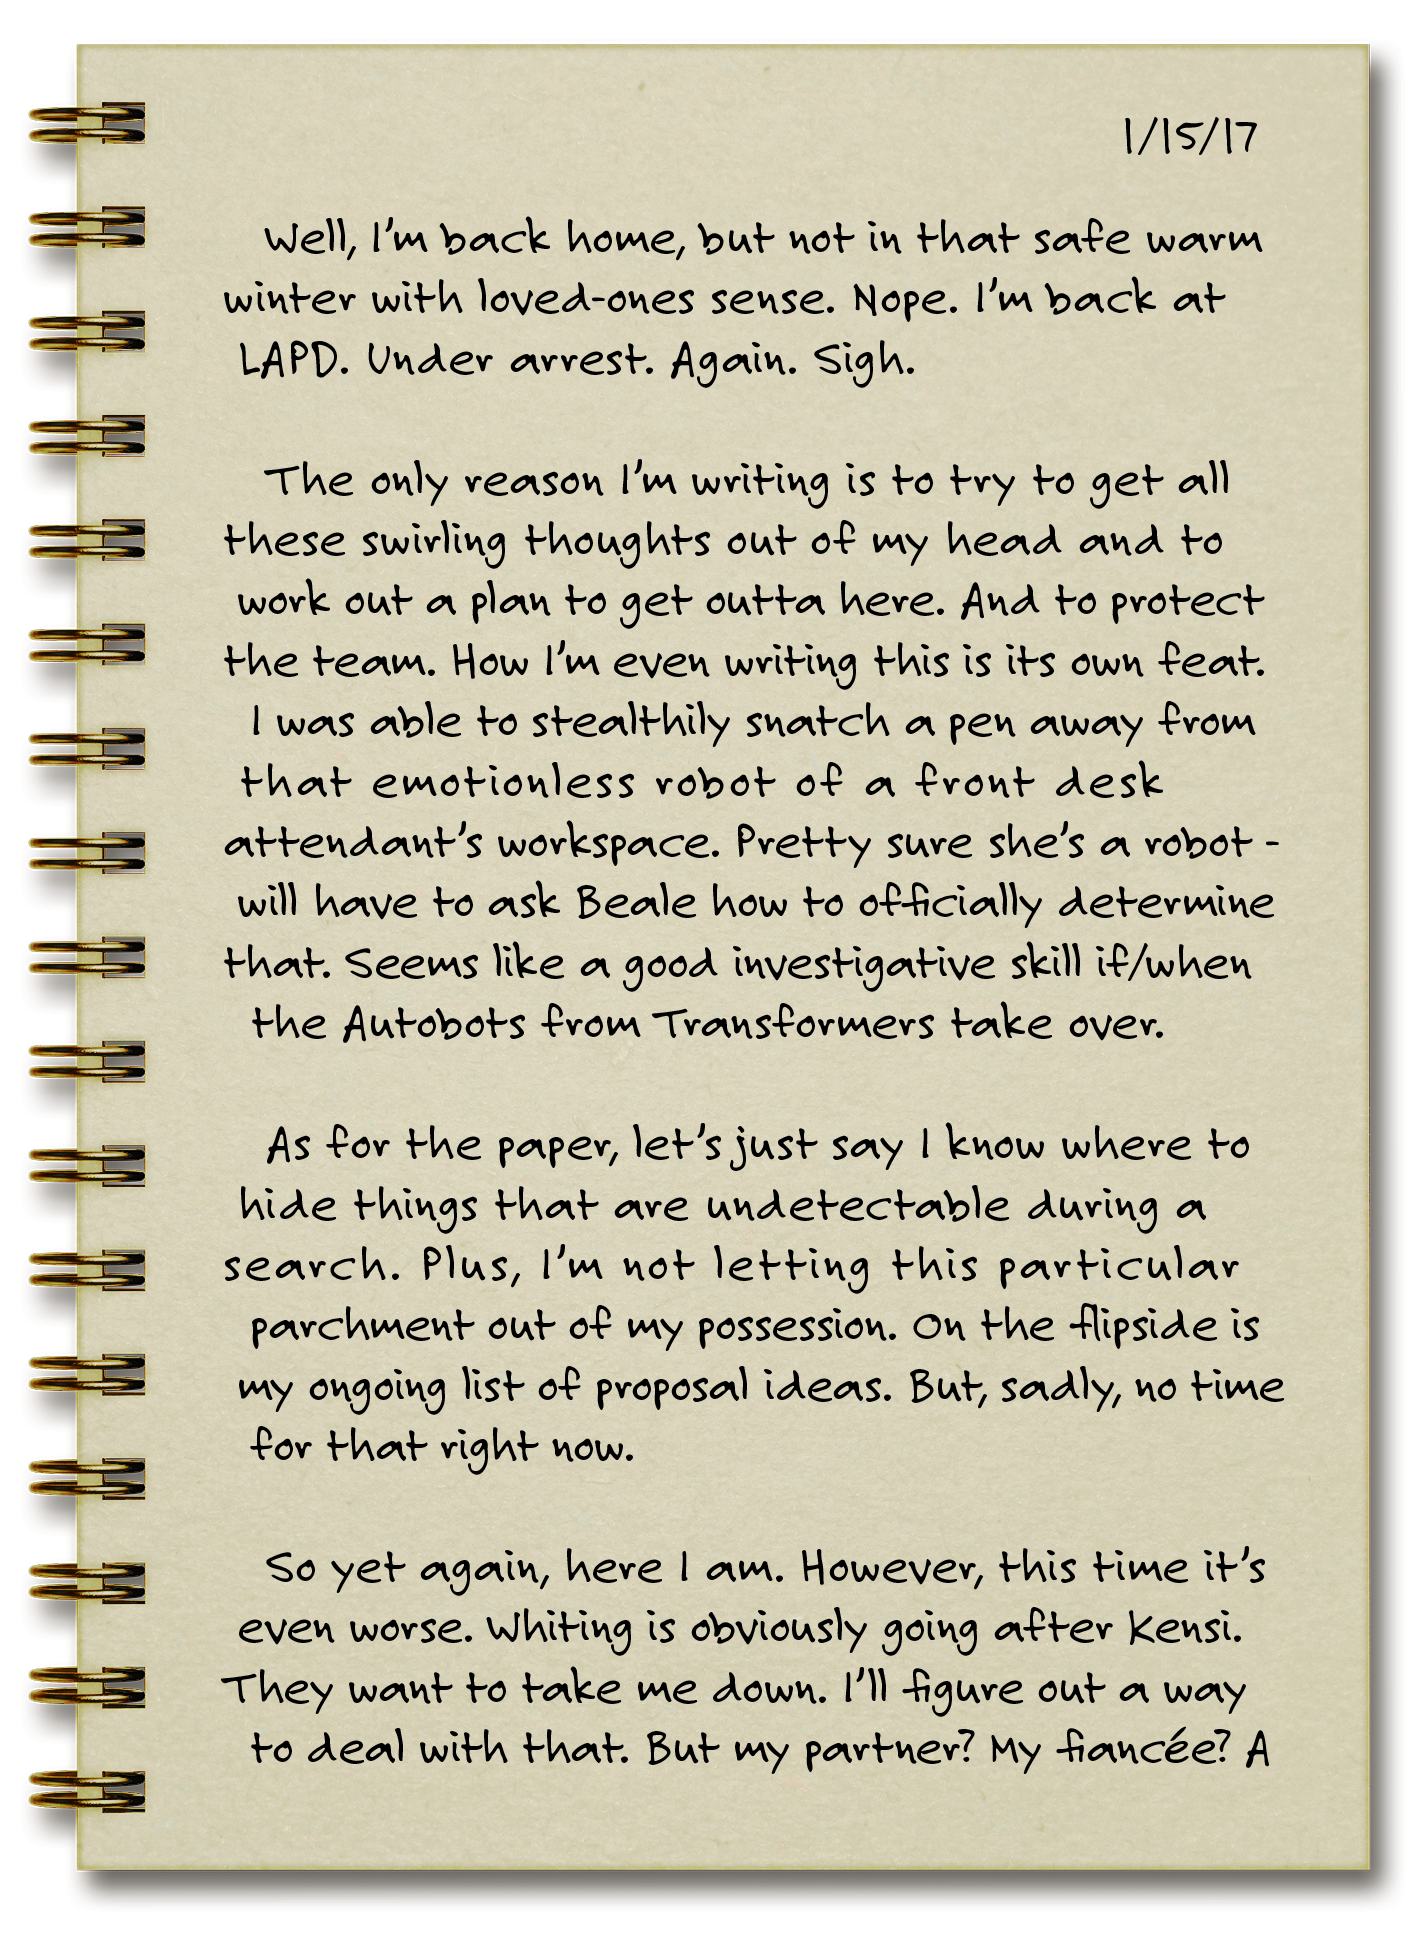 1/15/17
Well, I'm back home, but not in that safe warm
winter with loved-ones sense. Nope. I'm back at
LAPD. Under arrest. Again. Sigh.
The only reason I'm writing is to try to get all
these swirling thoughts out of my head and to
work out a plan to get outta here. And to protect
the team. How I'm even writing this is its own feat.
I was able to stealthily snatch a pen away from
that emotionless robot of a front desk
attendant's workspace. Pretty sure she's a robot -
will have to ask Beale how to officially determine
that. Seems like a good investigative skill if/when
the Autobots from Transformers take over.
As for the paper, let's just say I know where to
hide things that are undetectable during a
search. Plus, I'm not letting this particular
parchment out of my possession. On the flipside is
my ongoing list of proposal ideas. But, sadly, no time
for that right now.
So yet again, here I am. However, this time it's
even worse. Whiting is obviously going after Kensi.
They want to take me down. I'll figure out a way
to deal with that. But my partner? My fiancée? A